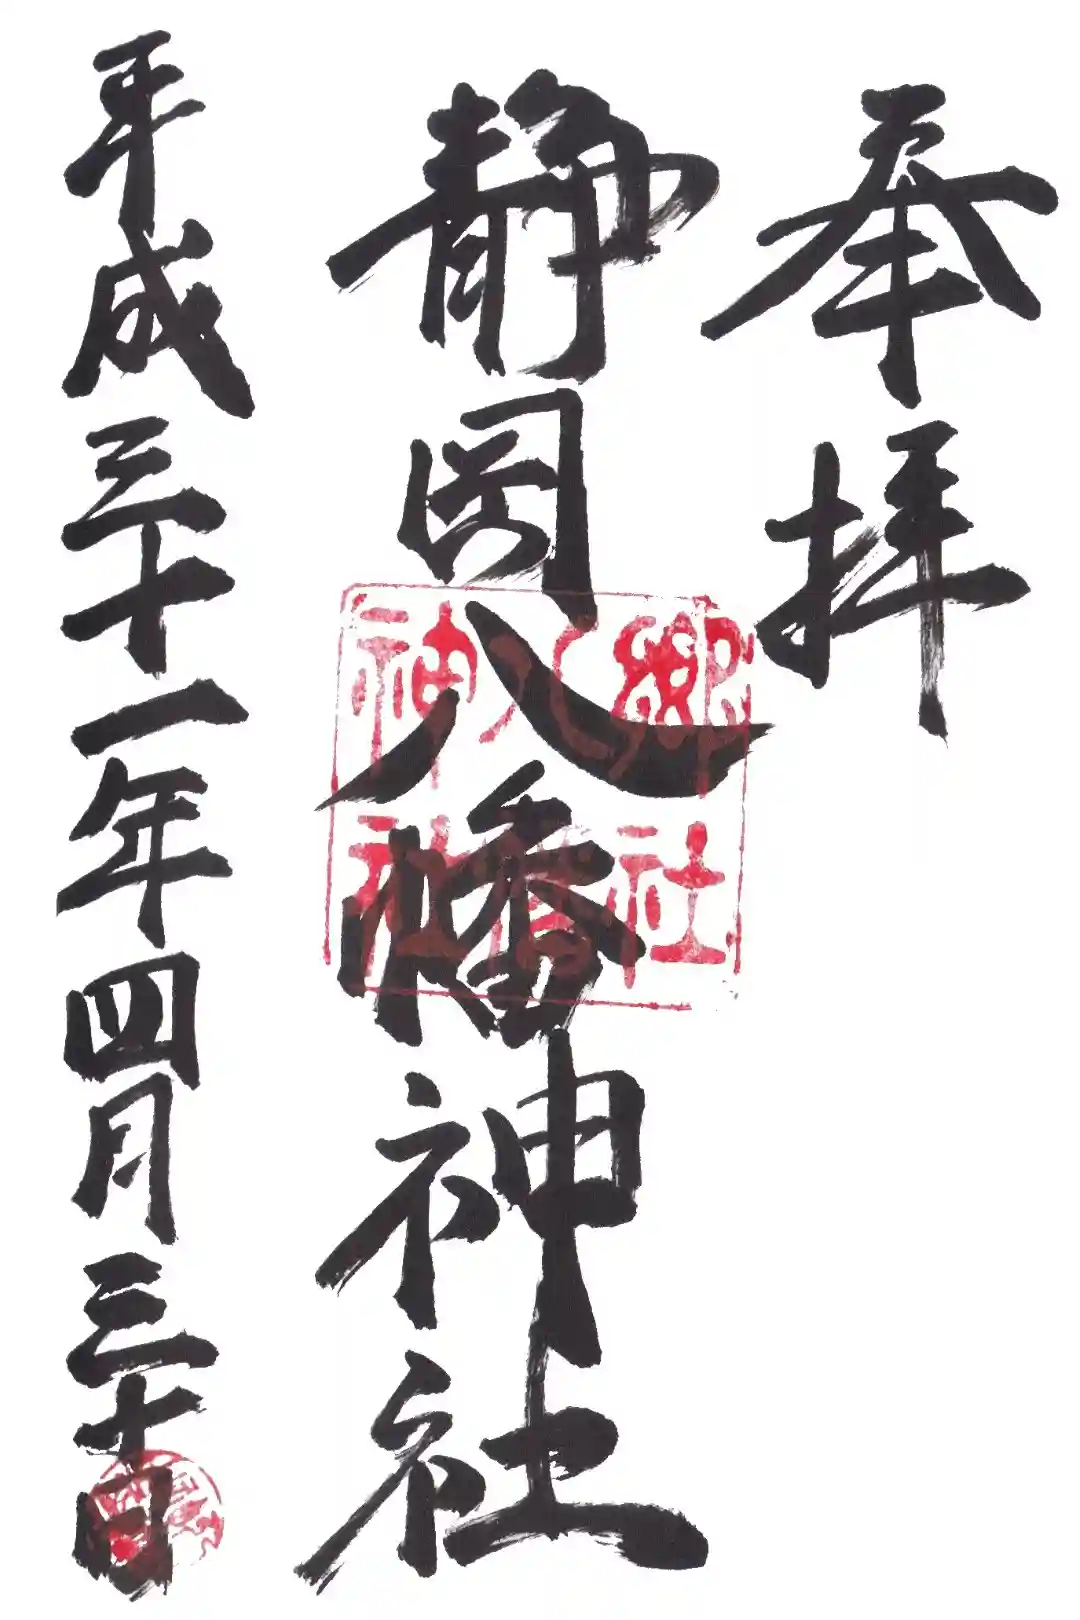 奉拝
静岡八幡神社
平成三十一年四月三十日
郷社
八幡
神社